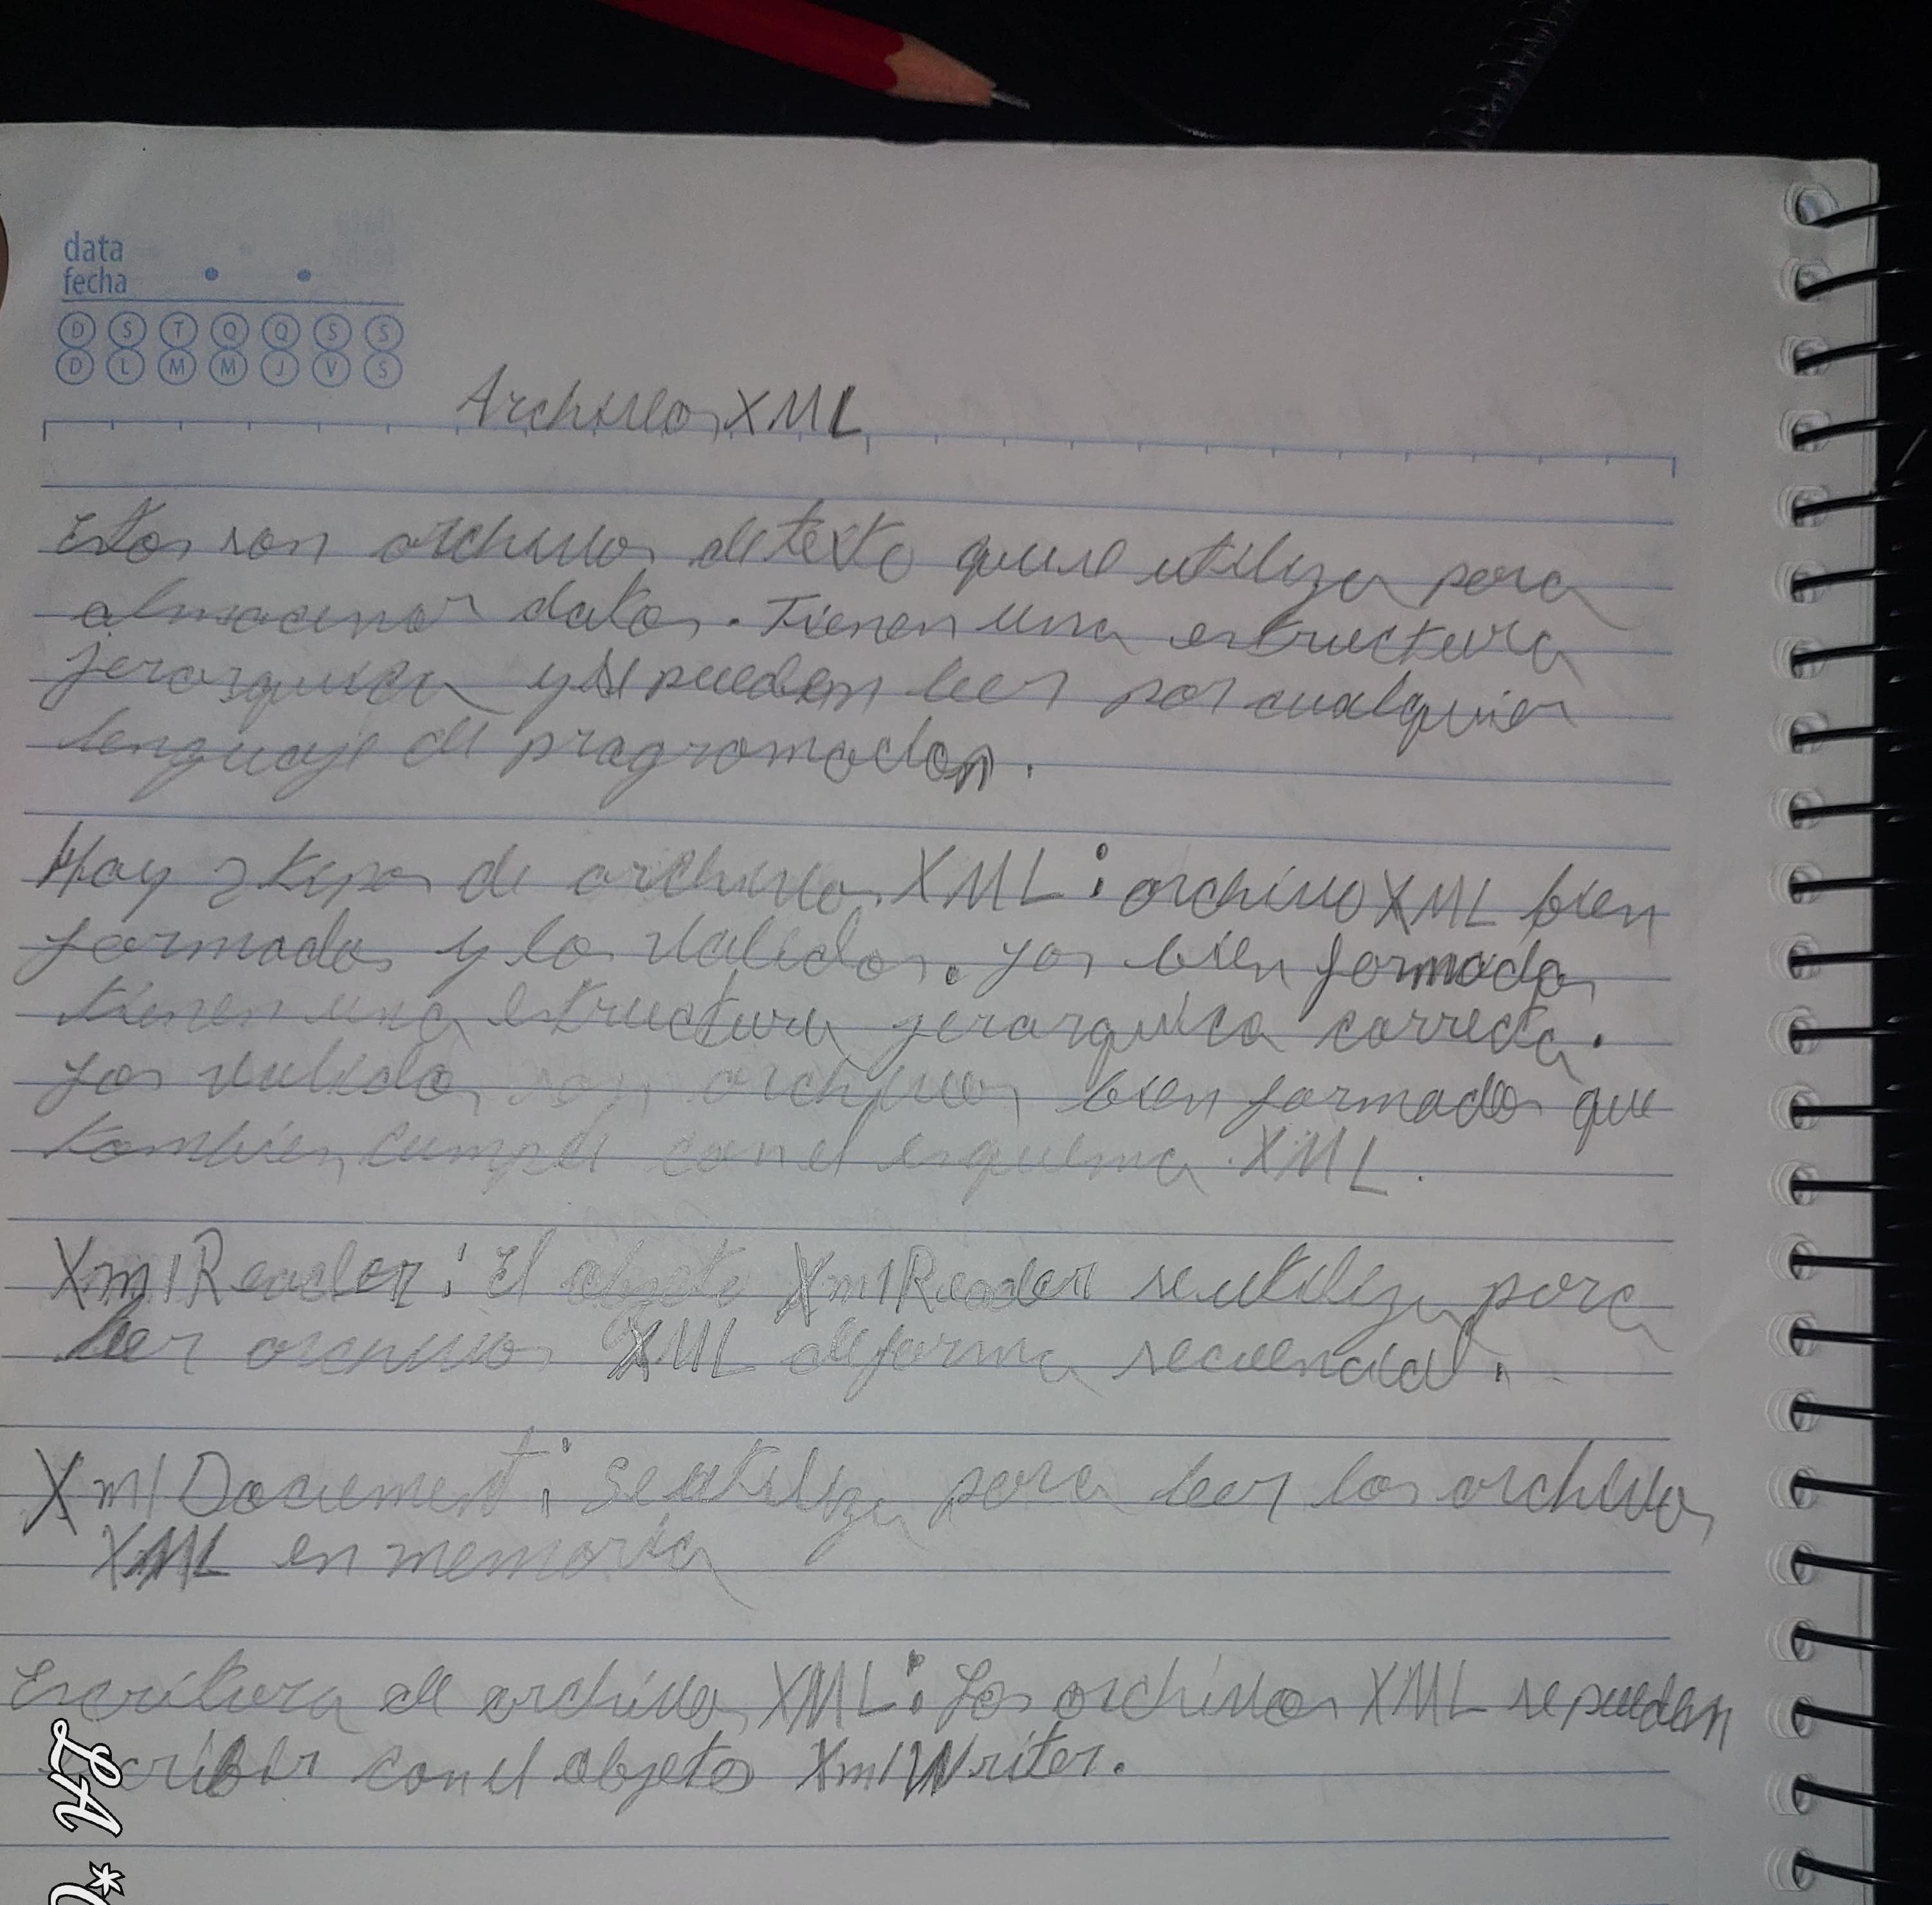 data
fecha
D S T Q Q S S
D L M M J V S
Archivos XML
Estos son archivos de texto que se utiliza para
almacenar datos. Tienen una estructura
jerarquica y se pueden leer por cualquier
lenguaje de programacion.
Hay 2 tipos de archivos XML: archivo XML bien
formados y los validos. Los bien formados
tienen una estructura jerarquica correcta.
Los validos son archivos bien formados que
tambien cumple con el esquema XML.
XmlReader: El objeto XmlReader se utiliza para
leer archivos XML de forma secuencial.
XmlDocument: Se utiliza para leer los archivos
XML en memoria
Escritura de archivos XML: Los archivos XML se pueden
escribir con el objeto XmlWriter.
LA *